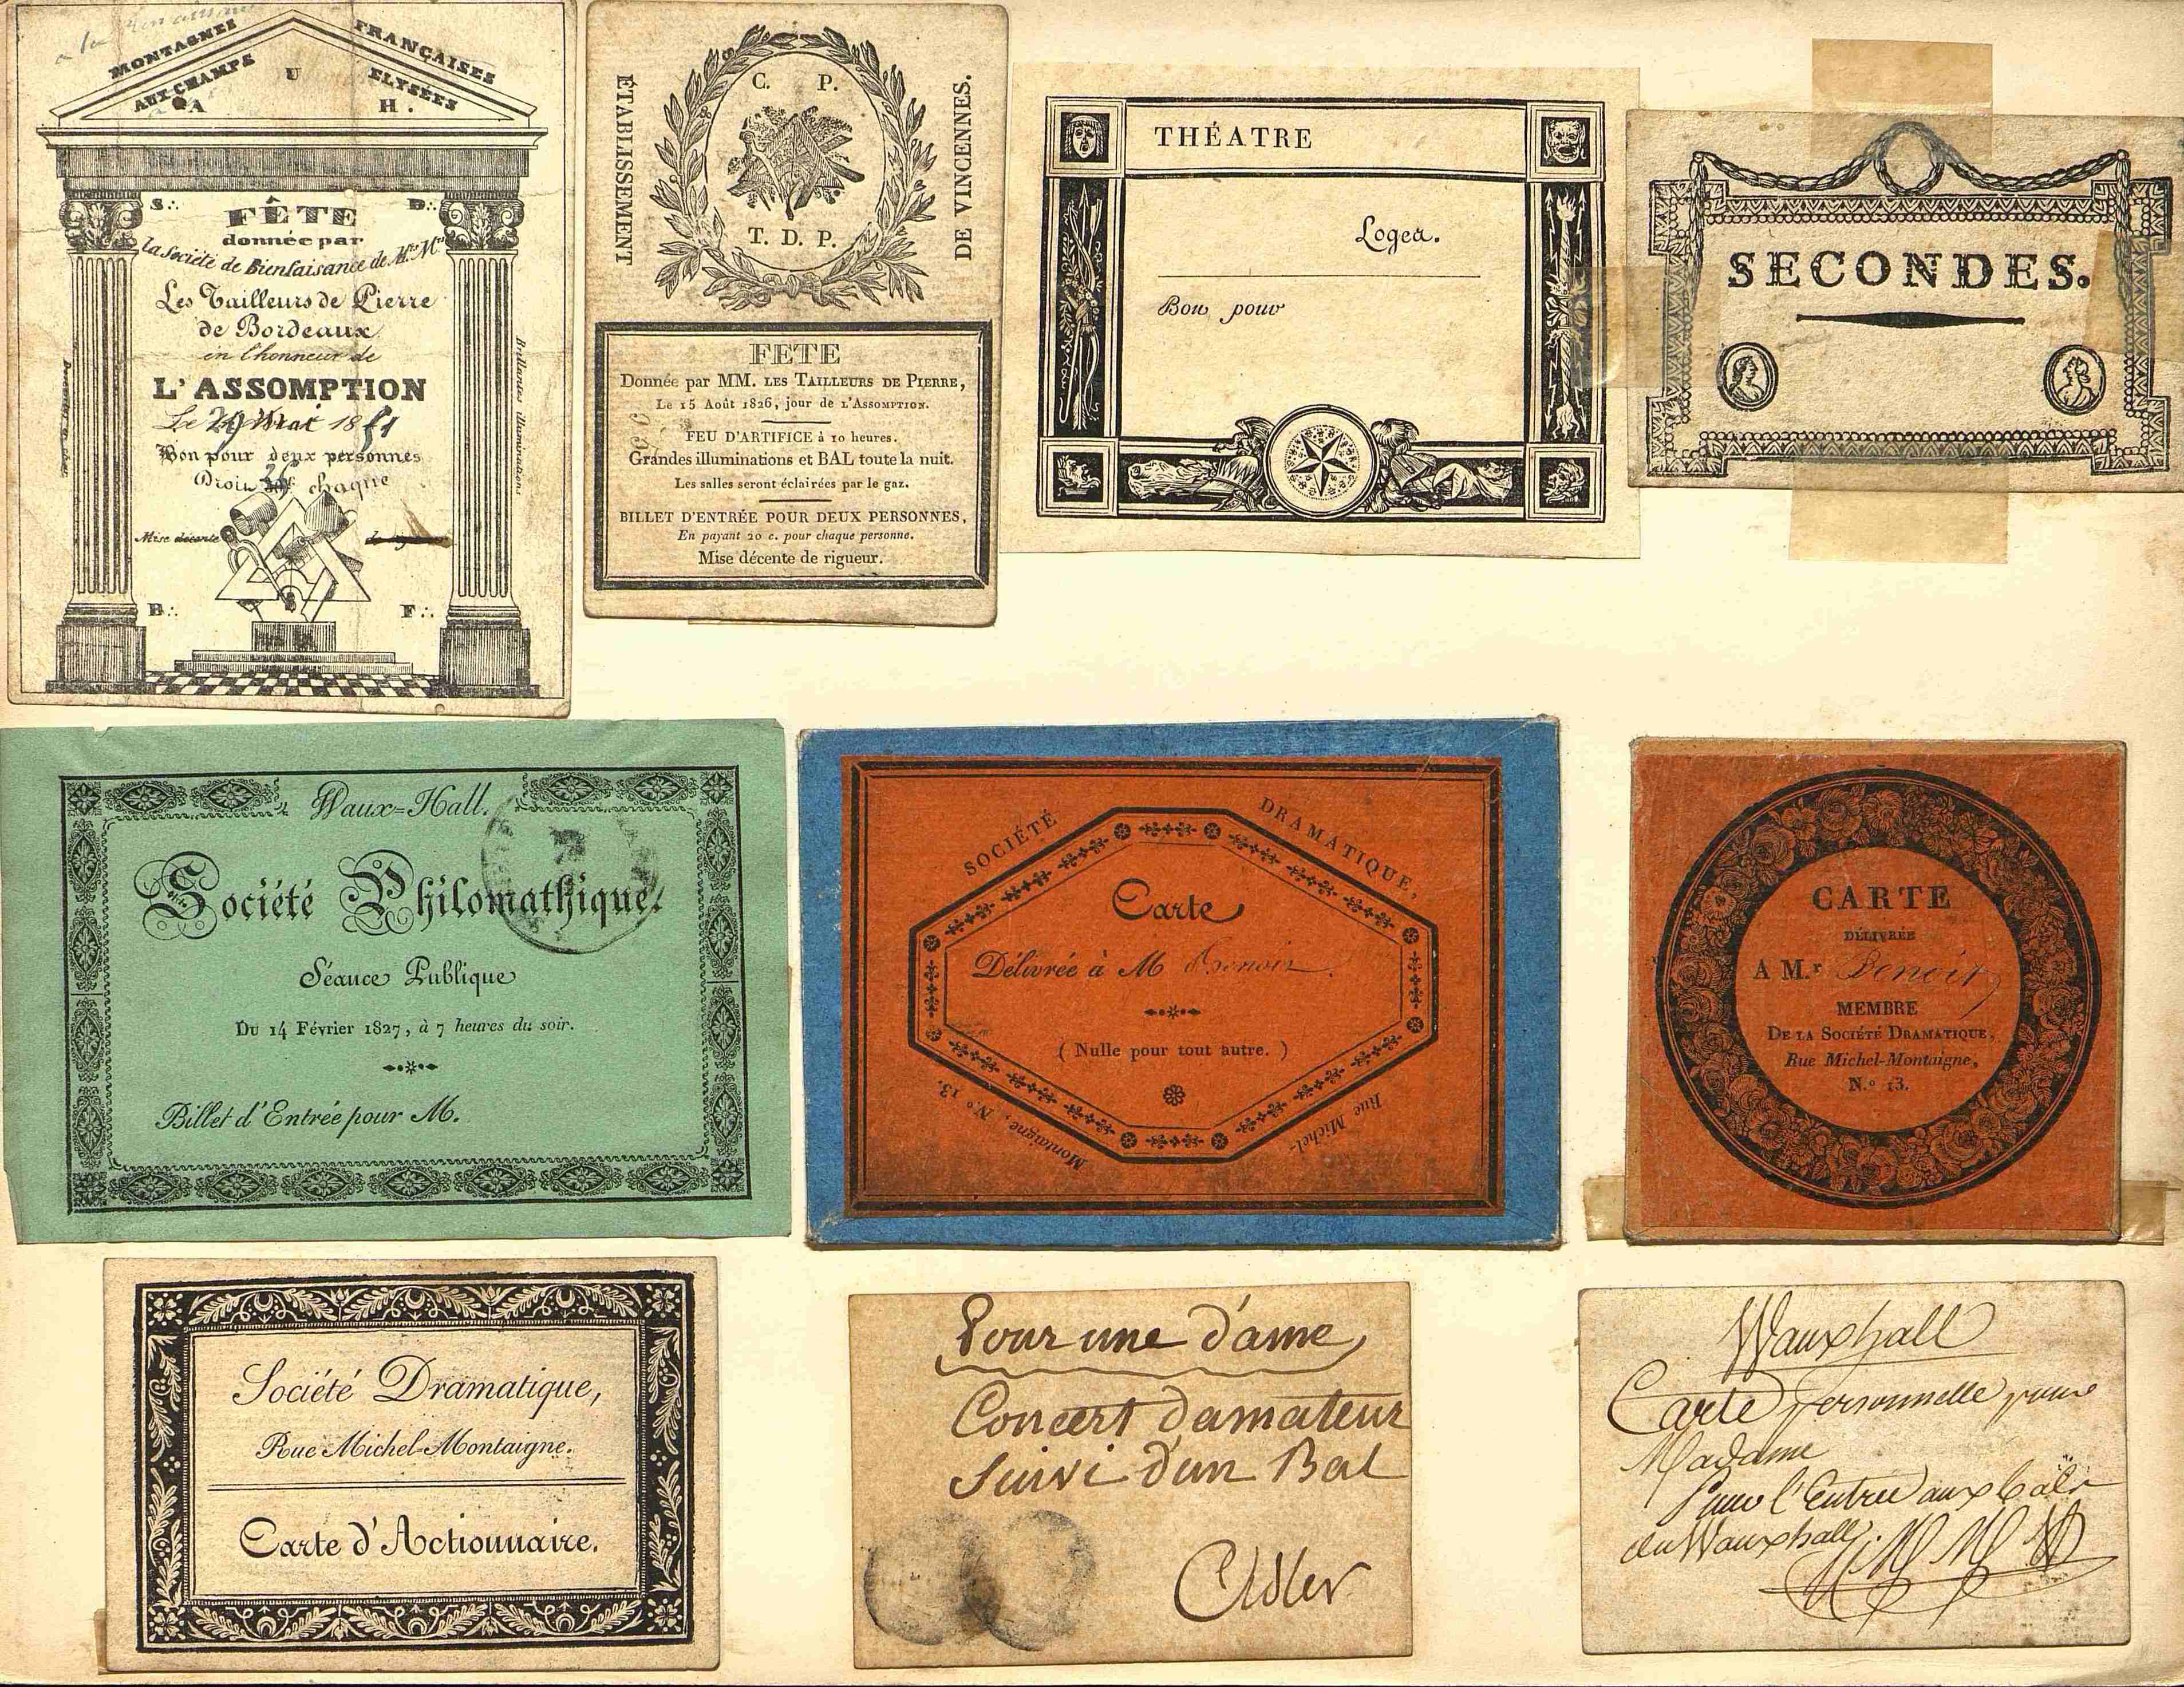 MONTAGNES FRANÇAISES
AUX CHAMPS ELYSÉES
U
A H.
S∴ D∴
FÊTE
donnée par
la Société de Bienfaisance de M.rs M.rs
Les Tailleurs de Pierre
de Bordeaux
en l'honneur de
L'ASSOMPTION
Le 29 Mai 18
Bon pour deux personnes
Droit chaque
Mise décente
Brillantes illuminations
B∴ F∴
ÉTABLISSEMENT
DE VINCENNES.
C. P.
T. D. P.
FETE
Donnée par MM. LES TAILLEURS DE PIERRE,
Le 15 Août 1826, jour de L'ASSOMPTION.
FEU D'ARTIFICE à 10 heures.
Grandes illuminations et BAL toute la nuit.
Les salles seront éclairées par le gaz.
BILLET D'ENTRÉE POUR DEUX PERSONNES,
En payant 20 c. pour chaque personne.
Mise décente de rigueur.
THÉATRE
Loges.
Bon pour
SECONDES.
Waux=Hall.
Société Philomathique.
Séance Publique
Du 14 Février 1827, à 7 heures du soir.
Billet d'Entrée pour M.
SOCIÉTÉ DRAMATIQUE,
Carte
Délivrée à M Benoit.
( Nulle pour tout autre. )
Rue Michel-
Montaigne, N.º 13.
CARTE
DÉLIVRÉE
A M.r Benoit
MEMBRE
DE LA SOCIÉTÉ DRAMATIQUE,
Rue Michel-Montaigne,
N.º 13.
Société Dramatique,
Rue Michel-Montaigne.
Carte d'Actionnaire.
Pour une d'ame
Concert d'amateur
Suivi d'un Bal
Adler
Wauxhall
Carte personnelle pour
Madame
Pour l'Entrée aux bals
du Wauxhall.